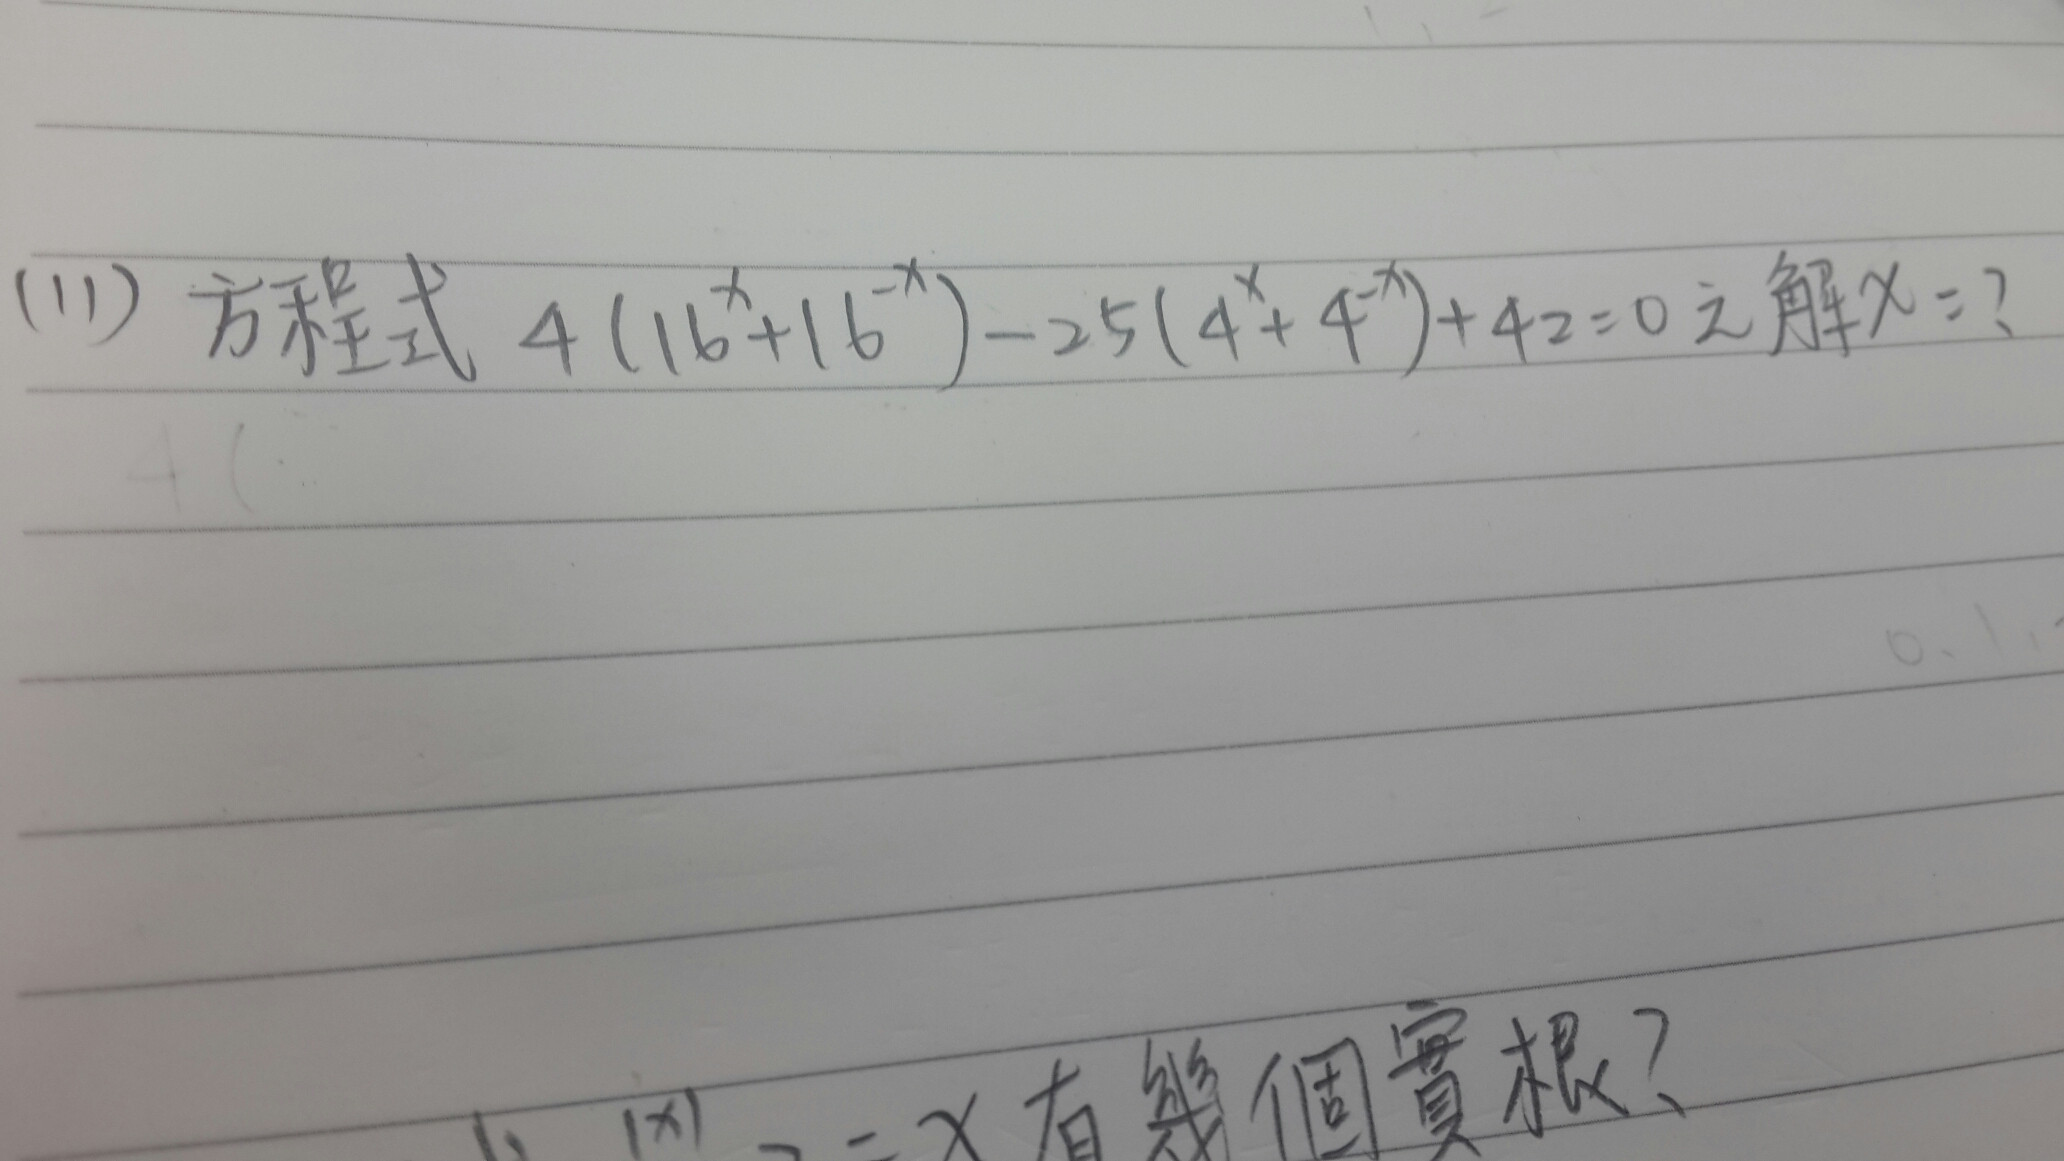 (11) 方程式 4(16^x+16^-x)-25(4^x+4^-x)+42=0之解x=?
4(
0.1.
|x| = x有幾個實根?